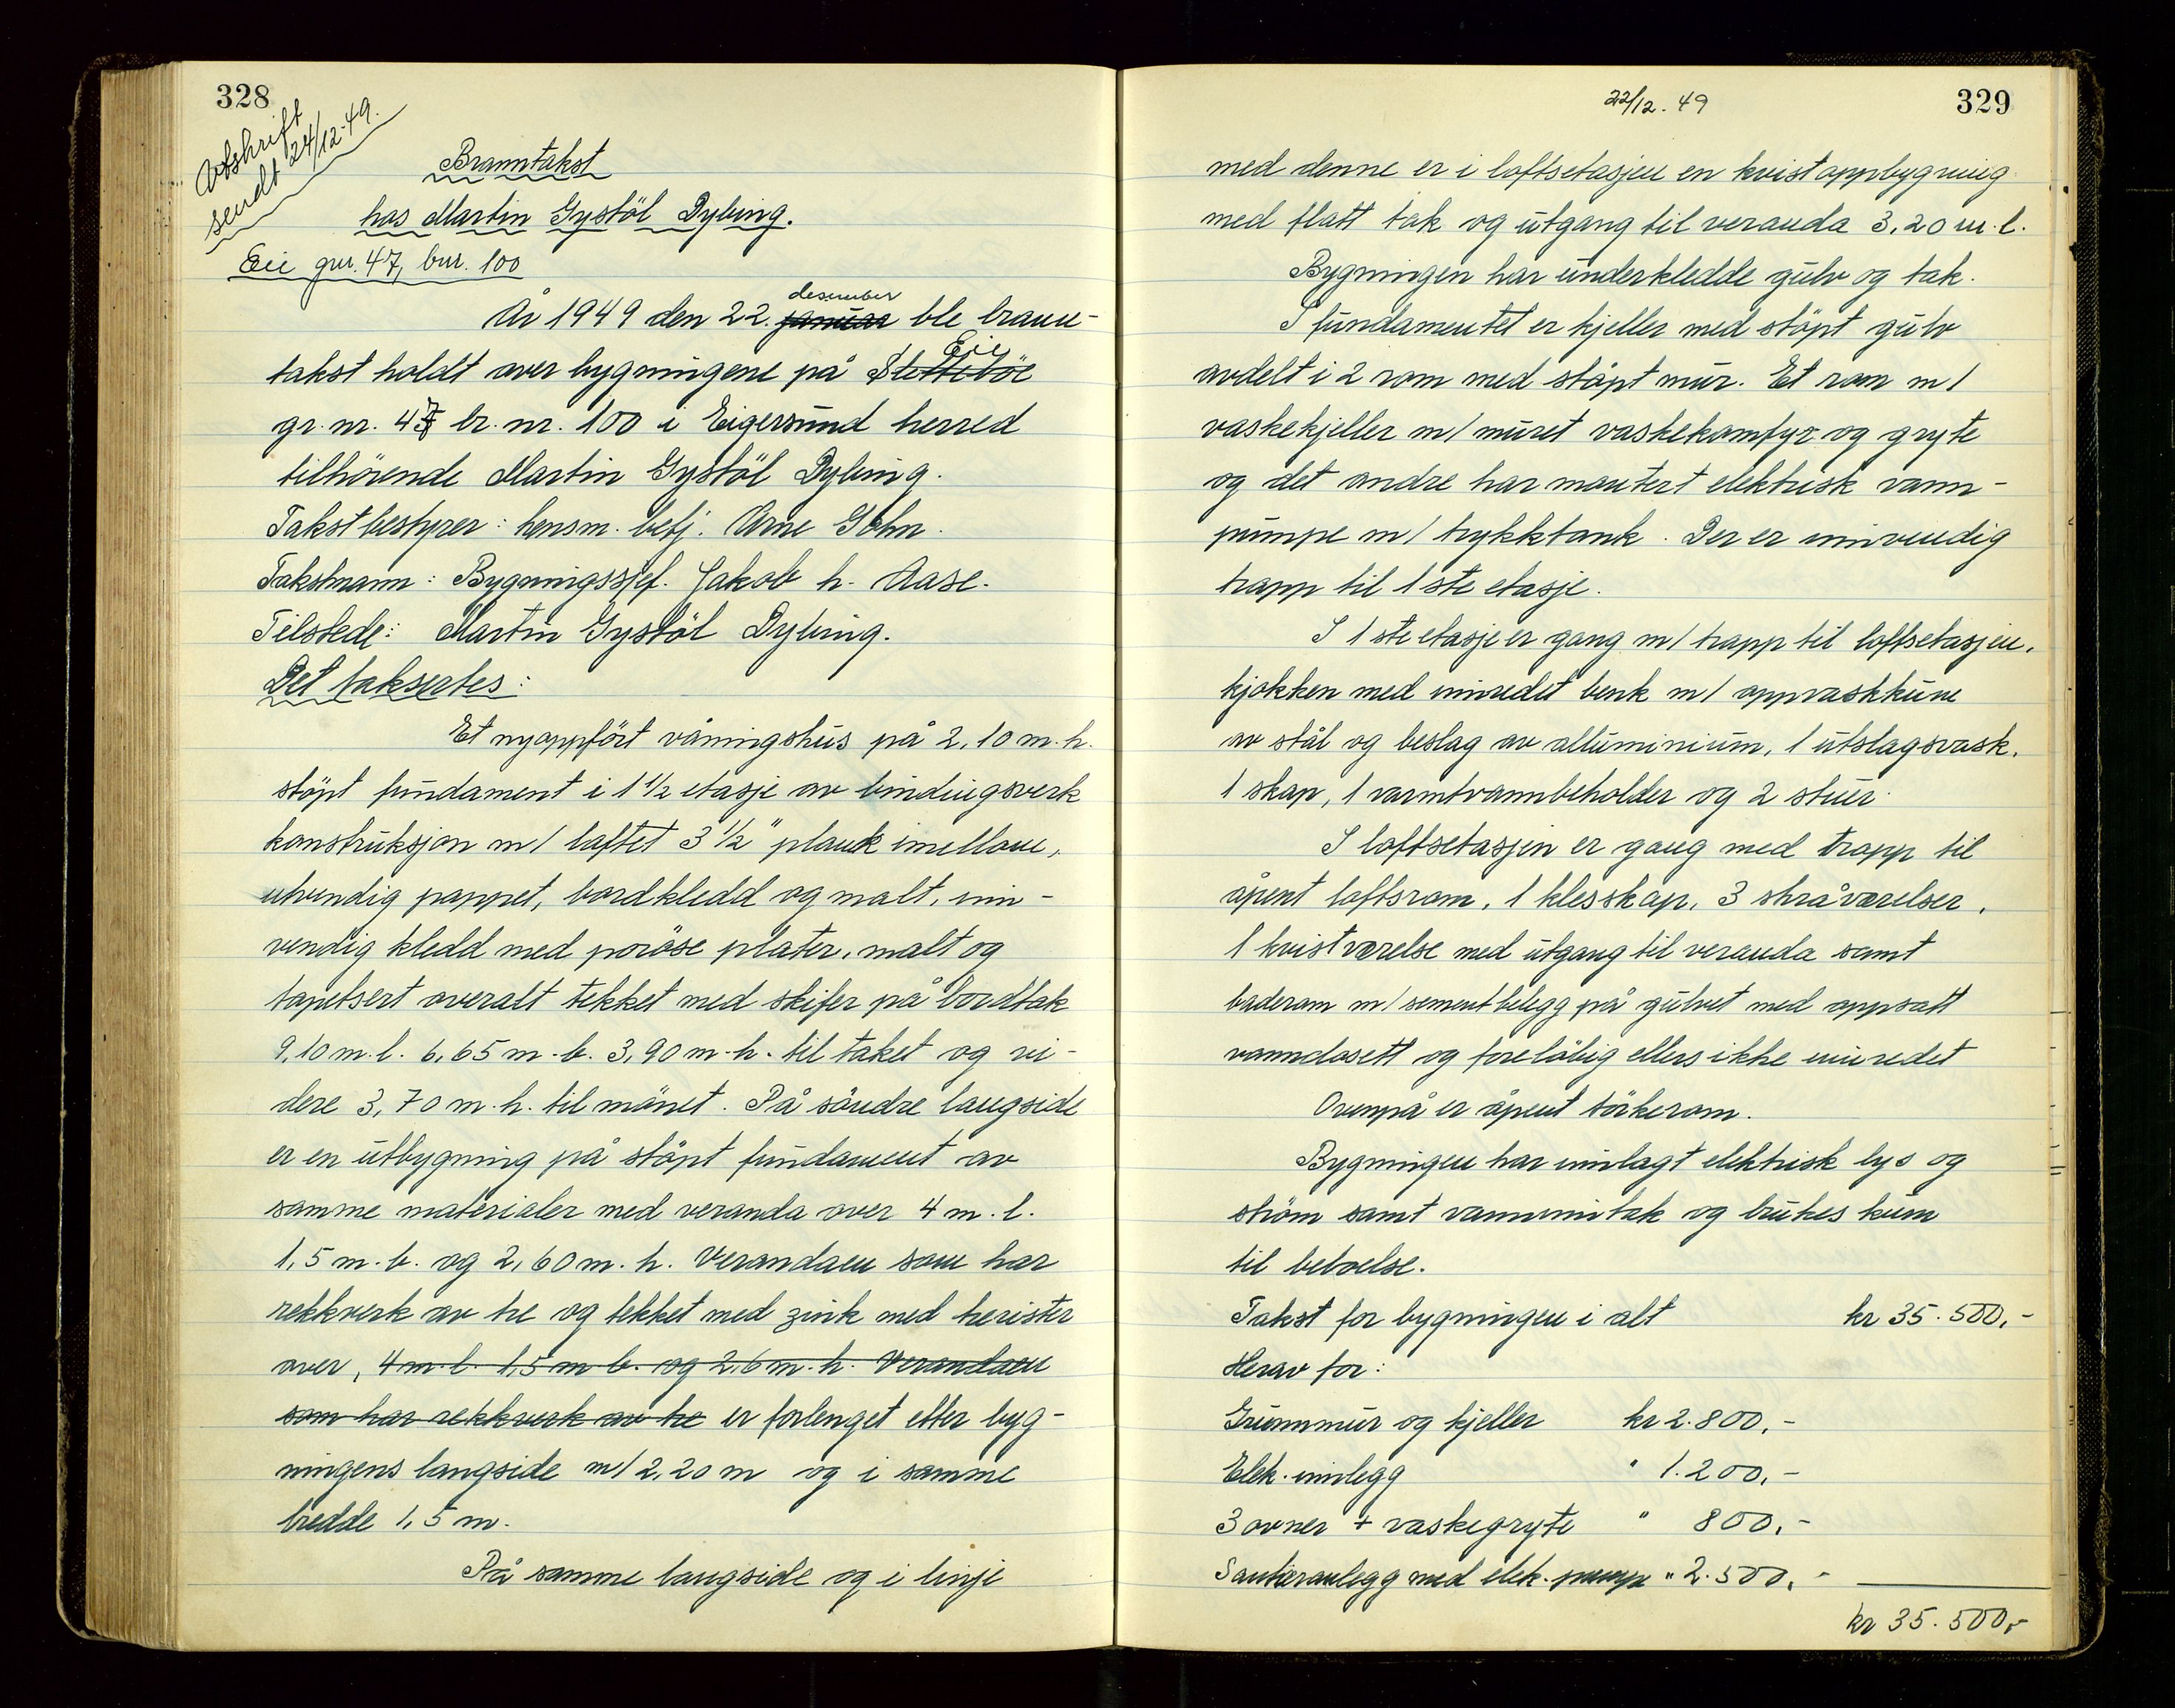 328
Avskrift
sendt 24/12-49.
Branntakst
hos Martin Gystöl Dybing.
Eie gnr. 47, bnr. 100
År 1949 den 22. januar desember ble brann-
takst holdt over bygningene på Sletteböe Eie
gr. nr. 47 br. nr. 100 i Eigersund herred
tilhörende Martin Gystöl Dybing.
Takstbestyrer: lensm. betj. Arne Gohn.
Takstmann: Bygningssjef. Jakob h. Aase.
Tilstede: Martin Gystöl Dybing.
Det taksertes:
Et nyoppfört våningshus på 2,10 m. h.
stöpt fundament i 1 1/2 etasje av bindingsverk
konstruksjon m/ laftet 3 1/2" plank imellom,
utvendig pappet, bordkledd og malt, inn-
vendig kledd med poröse plater, malt og
tapetsert overalt tekket med skifer på bordtak
9,10 m. l. 6,65 m. b. 3,90 m. h. til taket og vi-
dere 3,70 m. h. til mönet. På söndre langside
er en utbygning på stöpt fundament av
samme materialer med veranda over 4 m. l.
1,5 m. b. og 2,60 m. h. Verandaen som har
rekkverk av tre og tekket med zink med trerister
over, 4 m. l. 1,5 m b. og 2,6 m. h. Verandaen
som har rekkverk av tre er forlenget etter byg-
ningens langside m/ 2,20 m og i samme
bredde 1,5 m.
På samme langside og i linje
22/12. 49
329
med denne er i loftsetasjen en kvistoppbygning
med flatt tak og utgang til veranda 3,20 m. l.
Bygningen har underkledde gulv og tak.
I fundamentet er kjeller med stöpt gulv
avdelt i 2 rom med stöpt mur. Et rom m/
vaskekjeller m/ muret vaskekomfyr og gryte
og det andre har montert elektrisk vann-
pumpe m/ trykktank. Der er innvendig
trapp til 1ste etasje.
I 1ste etasje er gang m/ trapp til loftsetasjen,
kjokken med innredet benk m/ oppvaskkum
av stål og beslag av alluminium, 1 utslagsvask,
1 skap, 1 varmtvannbeholder og 2 stuer.
I loftsetasjen er gang med trapp til
åpent loftsrom, 1 klesskap, 3 skråværelser,
1 kvistværelse med utgang til veranda samt
baderom m/ sementbelegg på gulvet med oppsatt
vannclosett og forelöbig ellers ikke innredet
Ovenpå er åpent törkerom.
Bygningen har innlagt elektrisk lys og
ström samt vanninntak og brukes kun
til beboelse.
Takst for bygningen i alt kr 35.500,-
Herav for:
Grunnmur og kjeller kr 2.800,-
Elek. innlegg " 1.200,-
3 ovner + vaskegryte " 800,-
Sanitæranlegg med elek. pumpe " 2.500,-
kr 35.500,-